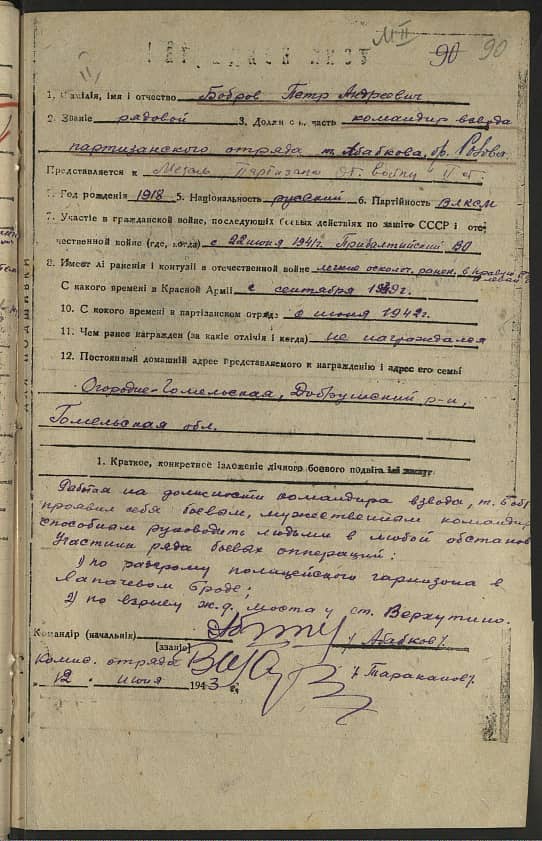 М II 90 90
НАГРАДНОЙ ЛИСТ
1. Фамілія, імя і отчество Бобров Петр Андреевич
2. Званіе рядовой 3. Должн с и. часть командир взвода
партизанского отряда т. Абабкова, бр.
Представляется к Медаль Партизану От. войны II ст.
Год рожденія 1918 5. Національность русский 6. Партійность ВЛКСМ
7. Участіе в гражданской войне, последующіх боевых действіях по защіте СССР і оте-
чественной войне (где, когда) с 22 июня 1941 г. Прибалтийский ВО
8. Имеет лі раненія і контузіі в отечественной войне легкие осколоч. ранен. в правую
левой
С какого времені в Красной Арміі с сентября 1939 г.
10. С кокого времені в партізанском отряде с июня 1942 г.
11. Чем ранее награжден (за какіе отлічія і когда) не награждался
12. Постоянный домашній адрес представляемого к награжденію і адрес его семьі
Огородне-Гомельская, Добрушский р-н,
Гомельская обл.
1. Краткое, конкретное ізложеніе лічного боевого подвіга
Работая на должности командира взвода, т. Бобр
проявил себя боевым, мужественным командир
способным руководить людьми в любой обстанов
Участник ряда боевых опперации:
1) по разгрому полицейского гарнизона в
Лапачевом Броде;
2) по взрыву ж.д. моста у ст. Верхутино.
Командір (начальнік) / Абабков /.
[званіе]
Комис. отряда / Тараканов /.
"12" июня 1943 г.